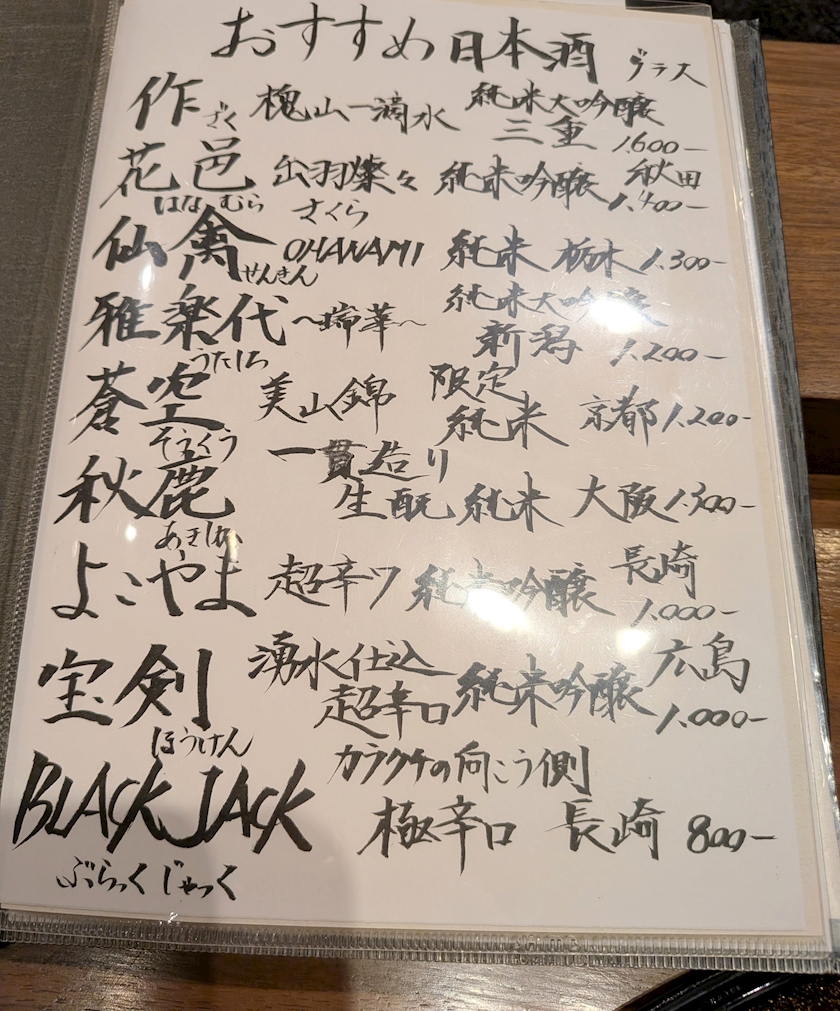 おすすめ日本酒 グラス
作 槐山一滴水 純米大吟醸
ざく 三重 1.600-
花邑 出羽燦々 純米吟醸 秋田
はなむら さくら 1.400-
仙禽 OHANAMI 純米 栃木 1.300-
せんきん
雅楽代 〜瑞華〜 純米大吟醸
うたしろ 新潟 1.200-
蒼空 美山錦 限定
そうくう 純米 京都 1.200-
秋鹿 一貫造り
あきしか 生酛 純米 大阪 1.300-
よこやま 超辛口 純米吟醸 長崎
1.000-
宝剣 湧水仕込 純米吟醸 広島
ほうけん 超辛口 1.000-
BLACK JACK カラクチの向こう側
極辛口 長崎 800-
ぶらっくじゃっく